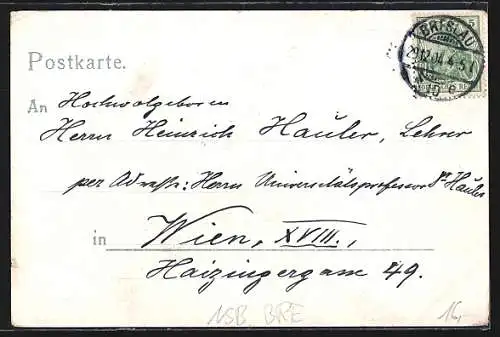 Postkarte.
BRESLAU
An Hochwolgeboren
Herrn Heinrich Hauler, Lehrer
per Adresse: Herrn Universitätsprofessor Dr Hauler
in Wien, XVIII.,
Haizingergasse 49.
NSB BRE
16,